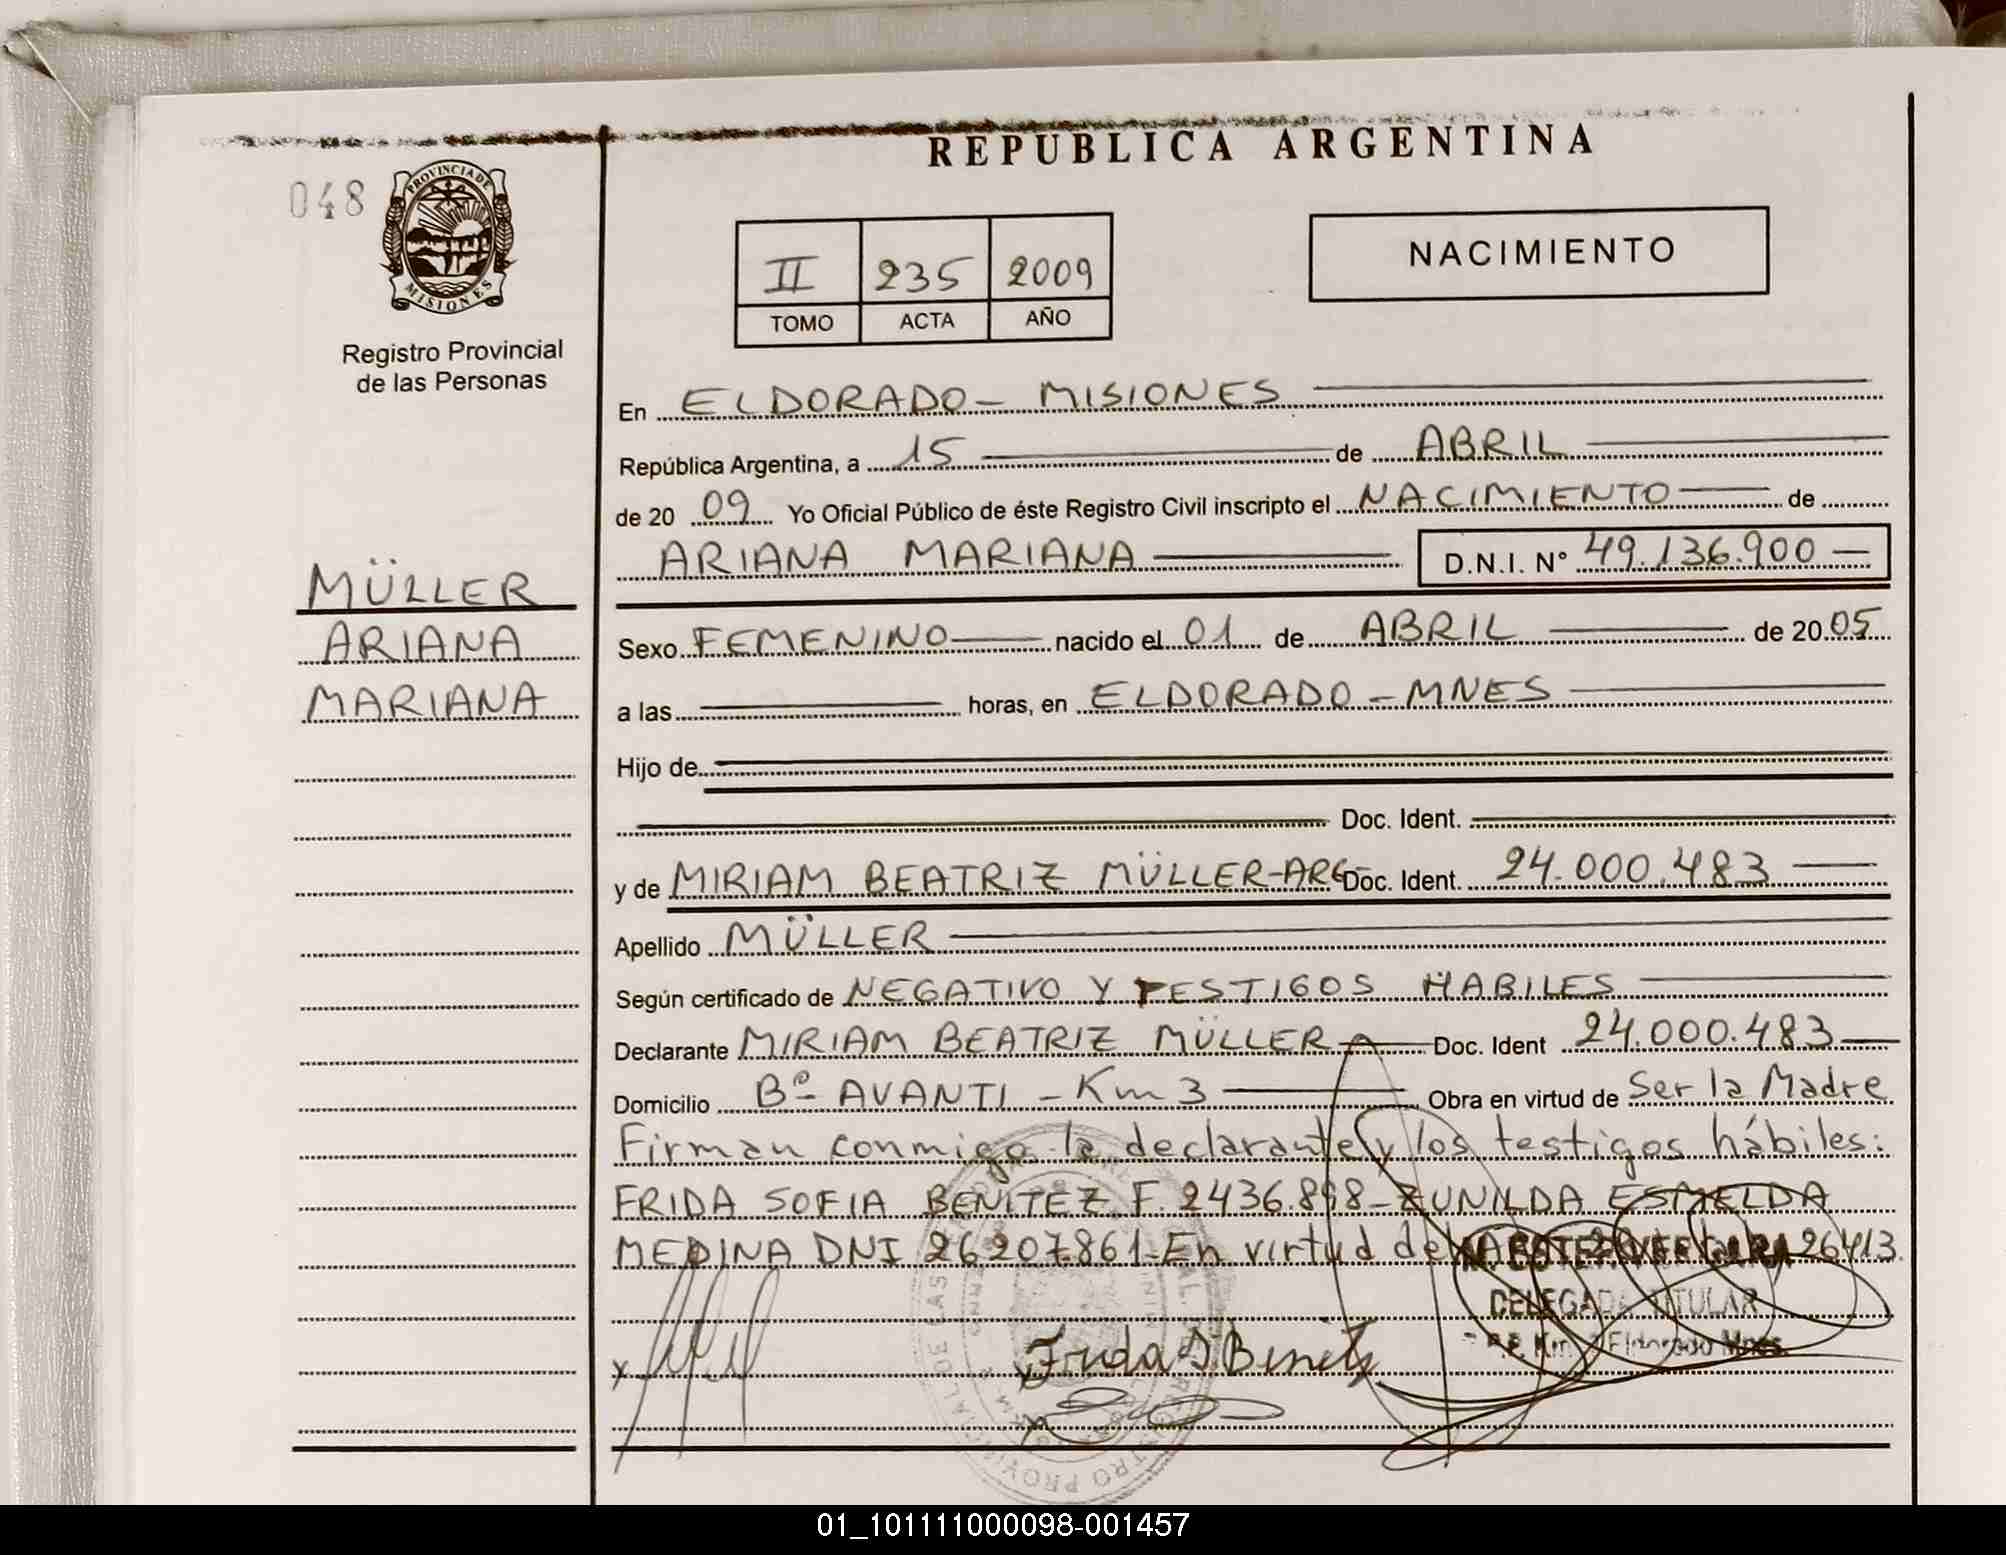 REPUBLICA ARGENTINA
048
PROVINCIA DE
MISIONES
Registro Provincial
de las Personas
II 235 2009
TOMO ACTA AÑO
NACIMIENTO
En ELDORADO - MISIONES
República Argentina, a 15 de ABRIL
de 20 09 Yo Oficial Público de éste Registro Civil inscripto el NACIMIENTO de
ARIANA MARIANA D.N.I. Nº 49.136.900
MÜLLER
ARIANA
MARIANA
Sexo FEMENINO nacido el 01 de ABRIL de 20 05
a las horas, en ELDORADO - MNES
Hijo de
Doc. Ident.
y de MIRIAM BEATRIZ MÜLLER-ARG Doc. Ident. 24.000.483
Apellido MÜLLER
Según certificado de NEGATIVO Y TESTIGOS HABILES
Declarante MIRIAM BEATRIZ MÜLLER Doc. Ident 24.000.483
Domicilio Bº AVANTI - Km 3 Obra en virtud de Ser la Madre
Firman conmigo la declarante y los testigos hábiles:
FRIDA SOFIA BENITEZ F. 2436.898-ZUNILDA ESMELDA
MEDINA DNI 26207861-En virtud de 26413.
DELEGADA TITULAR
Km. Eldorado Mnes.
x Frida S Benitez
01_101111000098-001457